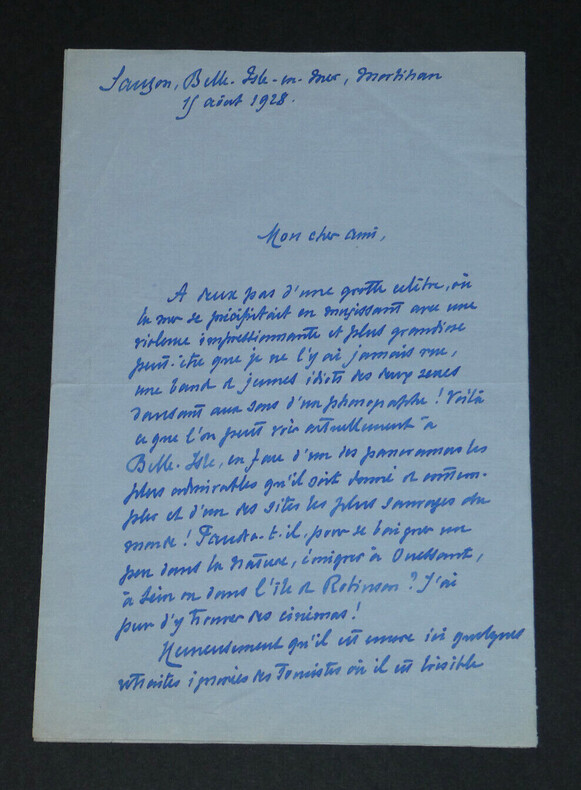 Sauzon, Belle-Isle-en-Mer, Morbihan
15 août 1928.
Mon cher ami,
A deux pas d'une grotte célèbre, où
la mer se précipitait en mugissant avec une
violence impressionnante et plus grandiose
peut-être que je ne l'y ai jamais vue,
une bande de jeunes idiots des deux sexes
dansant aux sons d'un phonographe ! Voilà
ce que l'on peut voir actuellement à
Belle-Isle, en face d'un des panoramas les
plus admirables qu'il soit donné de contem-
pler et d'un des sites les plus sauvages du
monde ! Faudra-t-il, pour se baigner un
peu dans la nature, émigrer à Ouessant,
à Sein ou dans l'île de Robinson ? J'ai
peur d'y trouver des cinémas !
Heureusement qu'il est encore ici quelques
retraites ignorées des Touristes où il est loisible